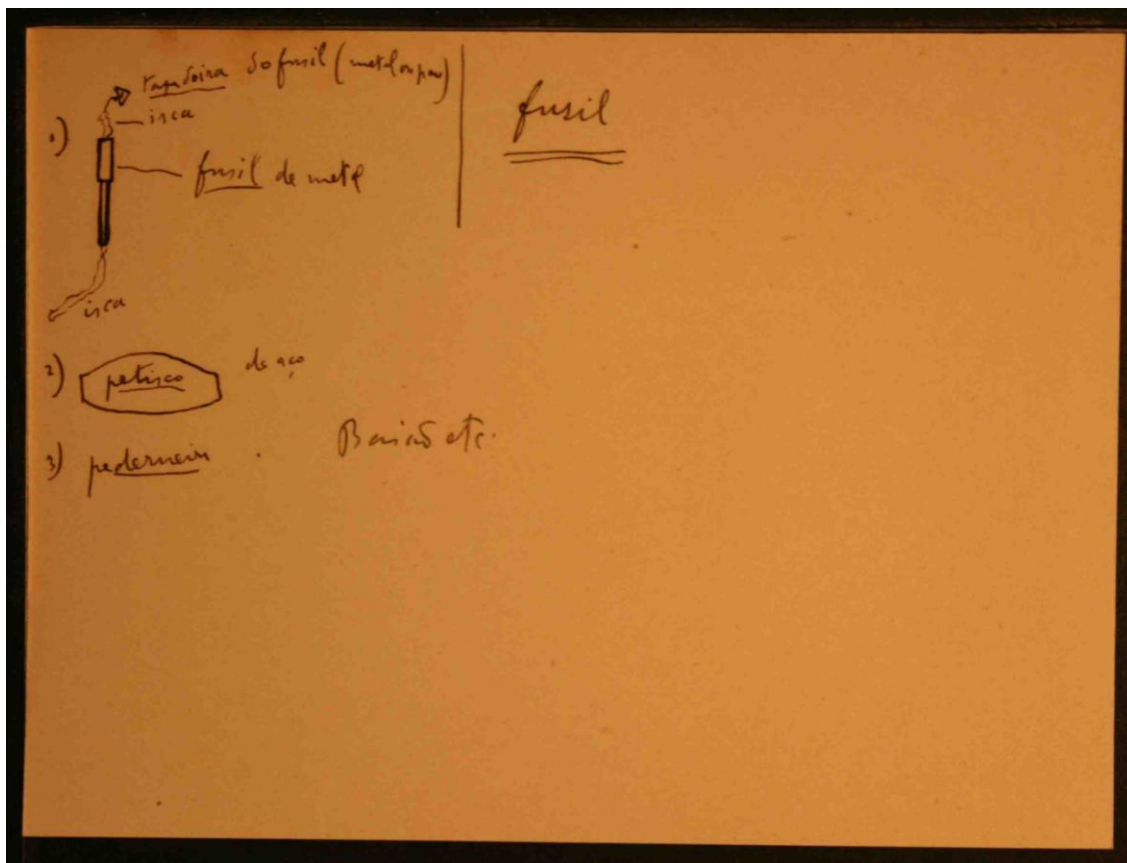 tapadoira do fusil (metal ou pau)
isca
1)
fusil de metal
isca
fusil
2) petisco de aço
3) pederneira
Baião etc.